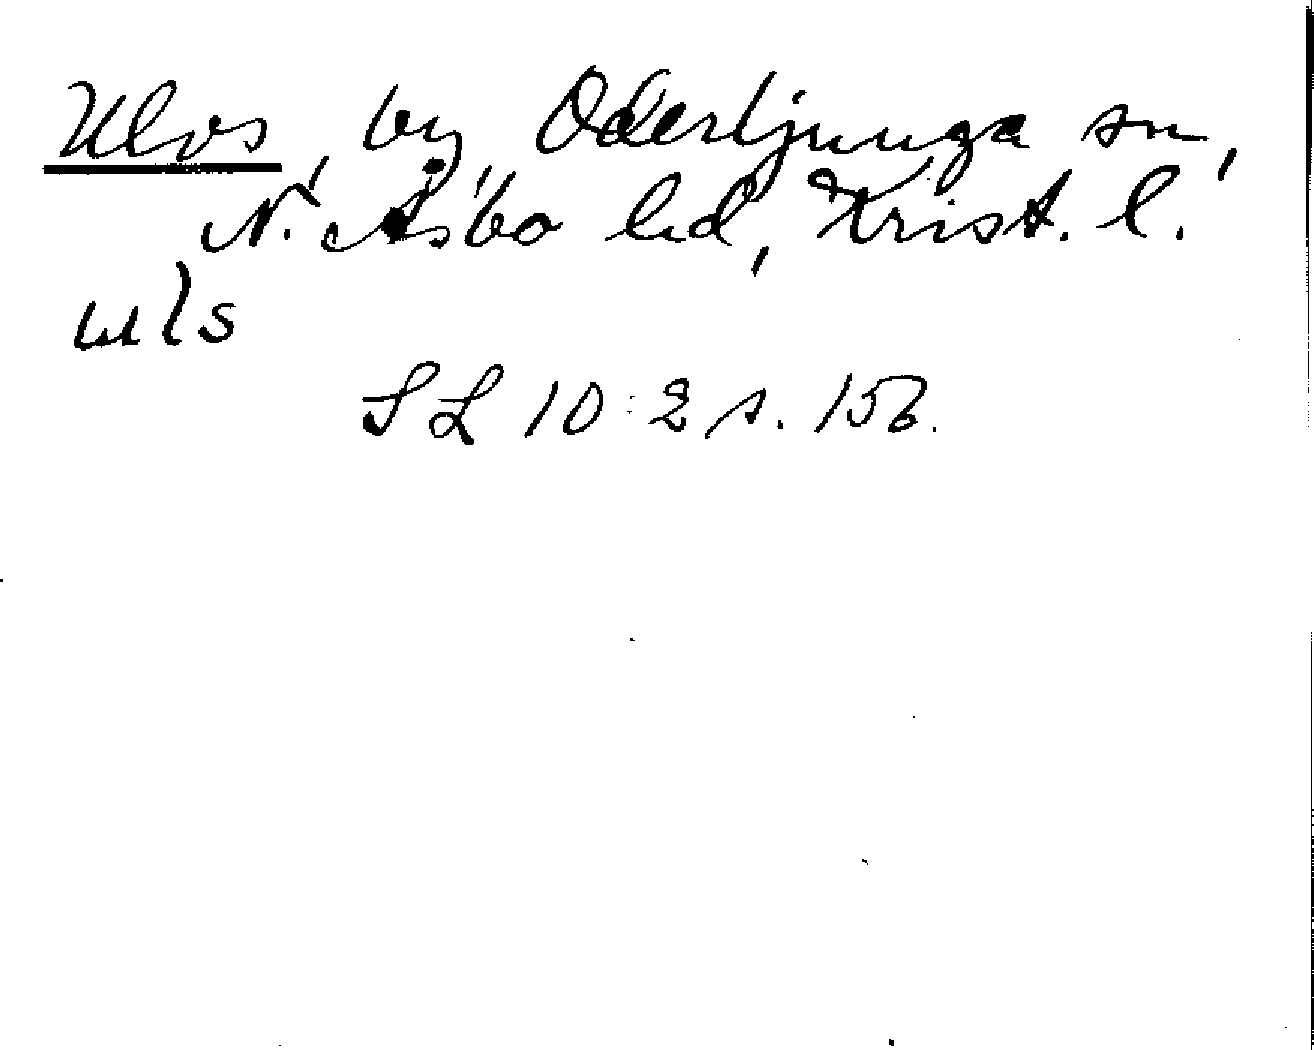 Ulvs, by Oderljunga sn,
N. Åsbo hd, Krist. l.
uls
SL 10:2 s. 156.